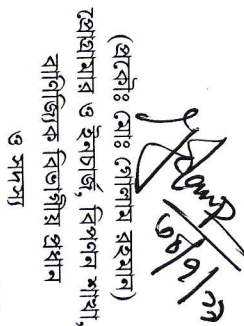 (প্রকৌঃ মোঃ গোলাম রহমান)
প্রোগ্রামার ও ইনচার্জ, বিপণন শাখা,
বাণিজ্যিক বিভাগীয় প্রধান
ও সদস্য